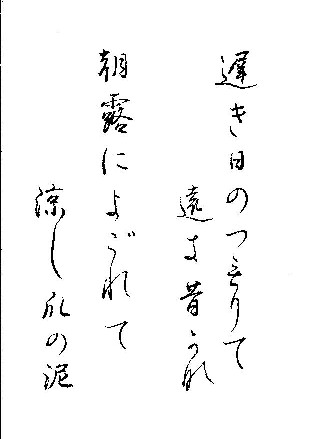 遅き日のつもりて
遠き昔かな
朝露によごれて
涼し瓜の泥